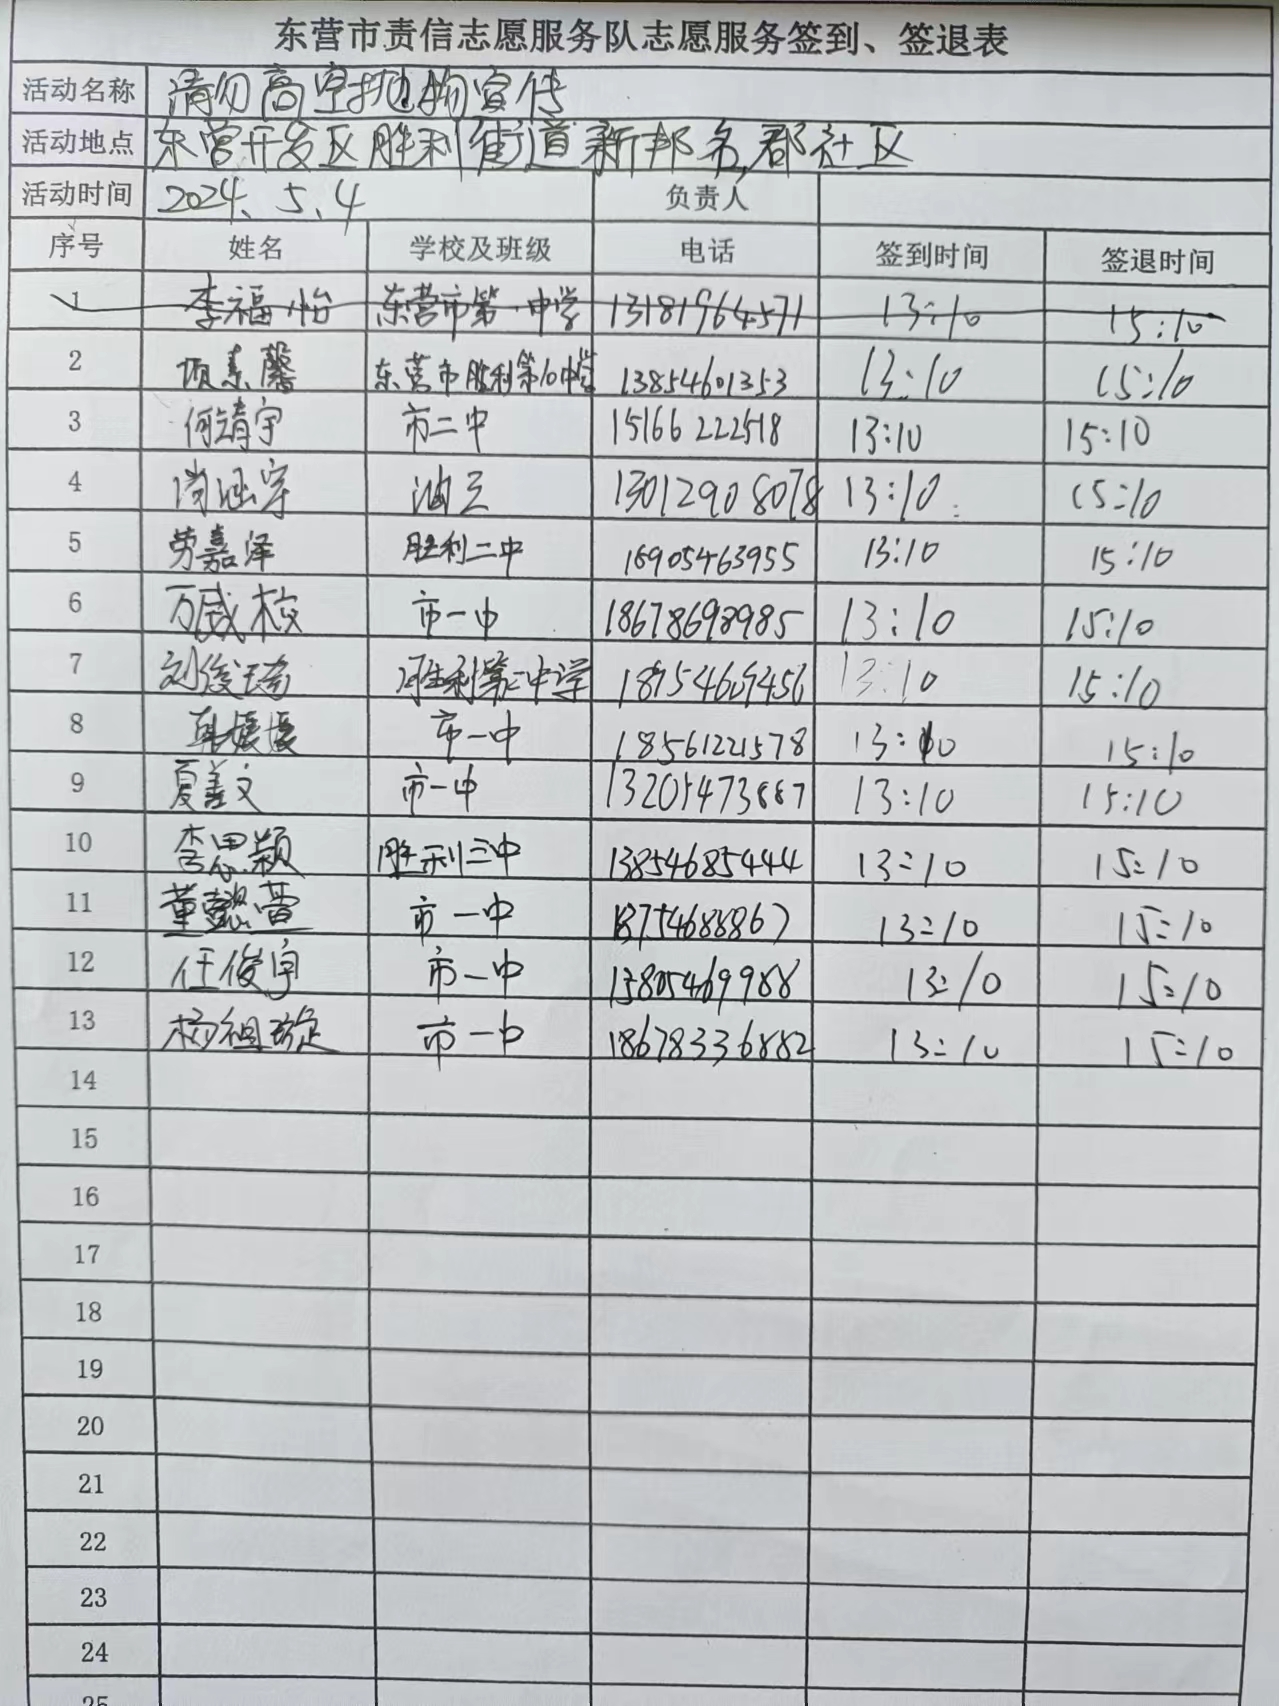 东营市责信志愿服务队志愿服务签到、签退表
活动名称 请勿高空抛物宣传
活动地点 东营开发区胜利街道新邦名郡社区
活动时间 2024.5.4 负责人
序号 姓名 学校及班级 电话 签到时间 签退时间
1 李福怡 东营市第一中学 13181964571 13:10 15:10
2 项素馨 东营市胜利第10中学 13854601353 13:10 15:10
3 何靖宇 市二中 15166222518 13:10 15:10
4 尚涵宇 油三 13012908078 13:10 15:10
5 劳嘉泽 胜利二中 18905463955 13:10 15:10
6 万威校 市一中 18678698985 13:10 15:10
7 刘俊琦 胜利第二中学 18954609456 13:10 15:10
8 韩媛媛 市一中 18561221578 13:10 15:10
9 夏善文 市一中 13205473887 13:10 15:10
10 李思颖 胜利三中 13854685444 13:10 15:10
11 董懿萱 市一中 18754688867 13:10 15:10
12 任俊宇 市一中 13805469988 13:10 15:10
13 杨祖璇 市一中 18678336882 13:10 15:10
14
15
16
17
18
19
20
21
22
23
24
25